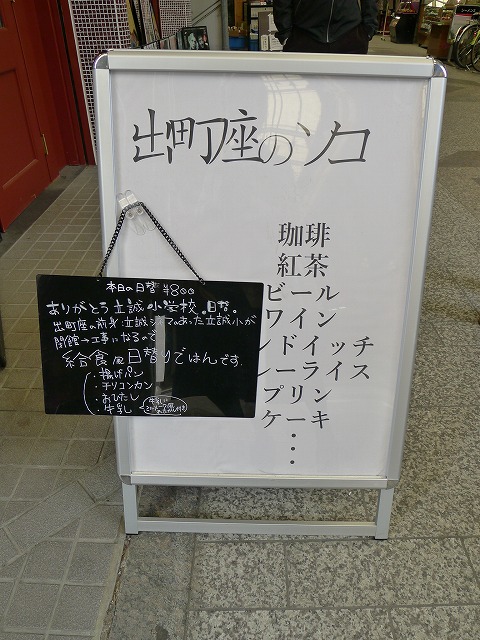 出町座のソコ
珈琲
紅茶
ビール
ワイン
ンドイッチ
レーライス
プリン
ケーキ
・
・
・
本日の日替 ¥800
ありがとう立誠小学校 日替。
出町座の前身、立誠シネマのあった立誠小が
閉館→工事になるので
給食風日替りごはんです。
・揚げパン
・チリコンカン
・おひたし
・牛乳